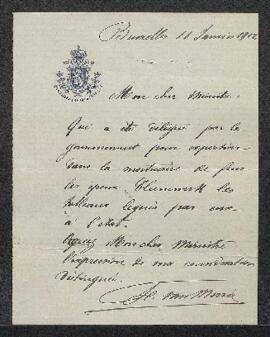 Bruxelles 11 Janvier 1902
Mon cher Ministre.
Qui a été délégué par le
gouvernement pour
dans la mortuaire de feu
les époux les
tableaux légués par eux
à l'état.
Agréez Mon cher Ministre
l'expression de ma considération
distinguée.